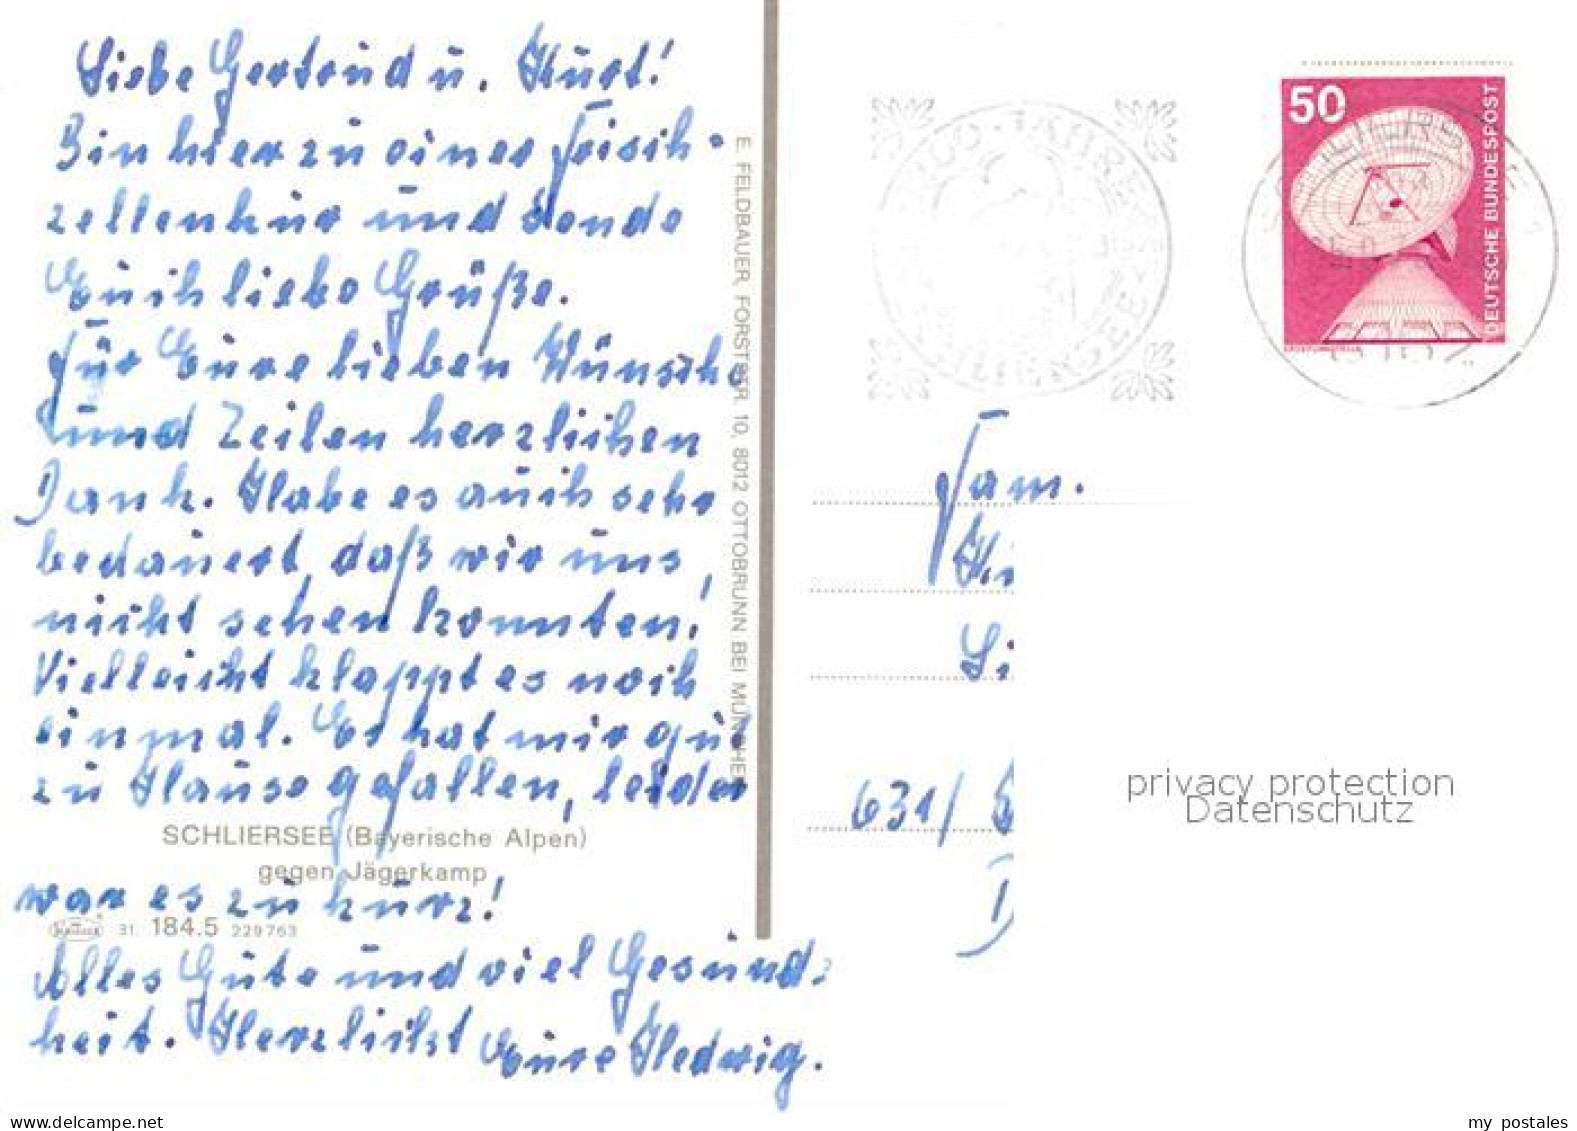 Liebe Gertrud u. Kurt!
Bin hier zu einer Frisch-
zellenkur und sende
Euch liebe Grüße.
Für Eure lieben Wünsche
und Zeilen herzlichen
Dank. Habe es auch sehr
bedauert, daß wir uns
nicht sehen konnten!
Vielleicht klappt es noch
einmal. Es hat mir gut
zu Hause gefallen, leider
SCHLIERSEE (Bayerische Alpen)
gegen Jägerkamp
war es zu kurz!
31 184.5 229763
Alles Gute und viel Gesund-
heit. Herzlichst Eure Hedwig.
E. FELDBAUER, FORSTSTR. 10, 8012 OTTOBRUNN BEI MÜNCHEN
1200 JAHRE
SCHLIERSEE
50
DEUTSCHE BUNDESPOST
Fam.
631/
privacy protection
Datenschutz
www.delcampe.net
my_postales